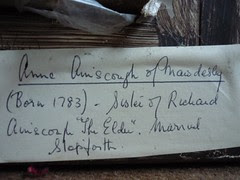 Anne Ainscough of Mawdesley
(Born 1783) - Sister of Richard
Ainscough "The Elder". Married
Stopforth.